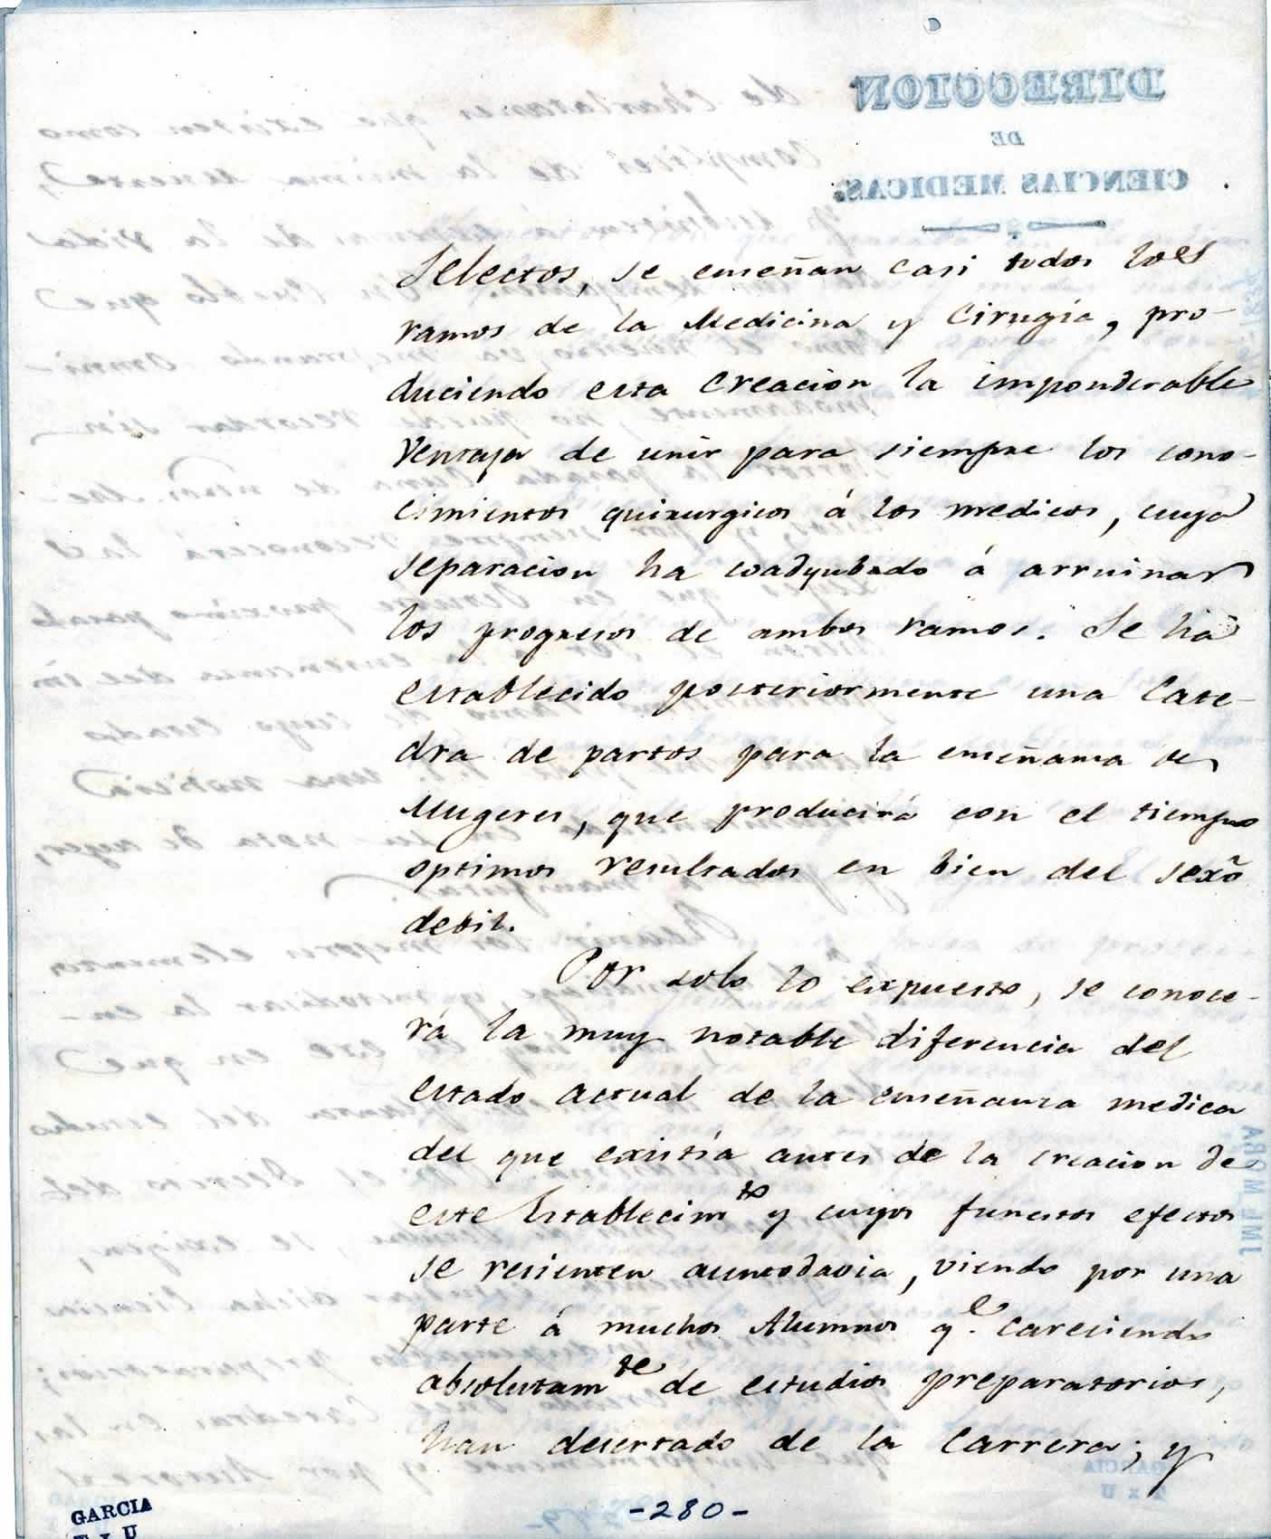 Selectos, se enseñan casi todos los
ramos de la Medicina y Cirugía, pro-
duciendo esta creacion la imponderable
ventaja de unir para siempre los cono-
cimientos quirurgicos á los medicos, cuya
separacion ha coadyubado á arruinar
los progresos de ambos ramos. Se ha
establecido posteriormente una Cate-
dra de partos para la enseñansa de
Mugeres, que producirá con el tiempo
optimos resultados en bien del sexô
debil.
Por solo lo expuesto, se conoce-
rá la muy notable diferencia del
estado actual de la enseñanza medica
del que existía antes de la creacion de
este Establecim.to y cuyos funestos efectos
se resienten auntodavia, viendo por una
parte á muchos Alumnos q.e careciendo
absolutam.te de estudios preparatorios,
han desertado de la Carrera; y
-280-
GARCIA